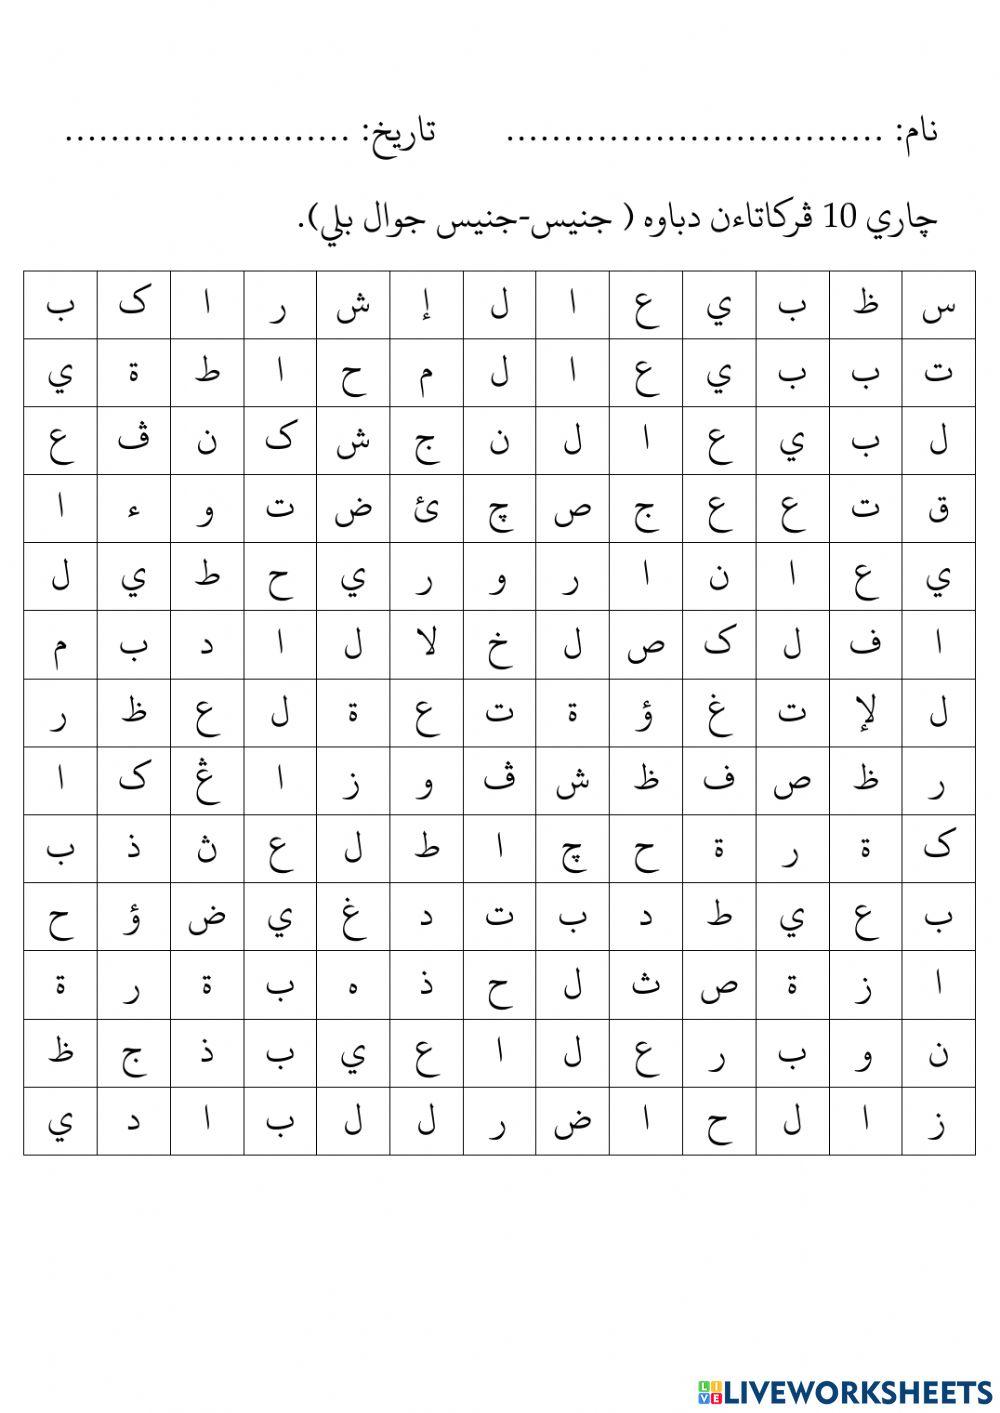 نام: .................................	تاريخ: .........................
چاري 10 ڤرکاتاءن دباوه ( جنيس-جنيس جوال بلي).
س ظ ب ي ع ا ل إ ش ر ا ک ب
ت ب ب ي ع ا ل م ح ا ط ة ي
ل ب ي ع ا ل ن ج ش ک ن ڤ ع
ق ت ع ع ج ص چ ئ ض ت و ء ا
ي ع ا ن ا ر و ر ي ح ط ي ل
ا ف ل ک ص ل خ لا ل ا د ب م
ل لإ ت غ ؤ ة ت ع ة ل ع ظ ر
ر ظ ص ف ظ ش ڤ و ز ا ڠ ک ا
ک ة ر ة ح چ ا ط ل ع ث ذ ب
ب ع ي ط د ب ت د غ ي ض ؤ ح
ا ز ة ص ث ل ح ذ ه ب ة ر ة
ن و ب ر ع ل ا ع ي ب ذ ج ظ
ز ا ل ح ا ض ر ل ل ب ا د ي
LIVEWORKSHEETS